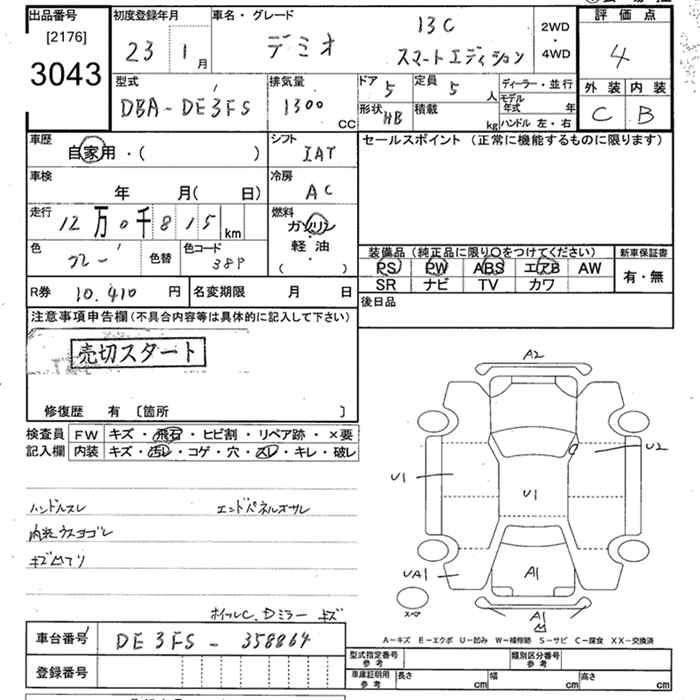 出品番号
[2176]
3043
初度登録年月
23 1月
車名・グレード
デミオ
13C
スマートエディション
2WD
・
4WD
評価点
4
外装 内装
C B
型式
DBA-DE3FS
排気量
1300 CC
ドア 5
定員 5 人
形状 HB
積載 kg
ディーラー・並行
モデル年式 年
ハンドル 左・右
車歴
自家用・( )
シフト
IAT
セールスポイント (正常に機能するものに限ります)
車検
年 月( 日)
冷房
AC
走行
12万0千815km
燃料
ガソリン
軽油
( )
色
グレー
色替
色コード
38P
装備品 (純正品に限り○をつけてください)
PS PW ABS エアB AW
SR ナビ TV カワ
新車保証書
有・無
R券 10.410 円
名変期限 月 日
後日品
注意事項申告欄(不具合内容等は具体的に記入して下さい)
売切スタート
修復歴 有 〔箇所 〕
検査員記入欄
FW キズ・飛石・ヒビ割・リペア跡・×要
内装 キズ・汚レ・コゲ・穴・スレ・キレ・破レ
ハンドルスレ
エンドパネルズサレ
内装ウスヨゴレ
キズ凹アリ
ホイルC、Dミラーキズ
A2
U2
U1
U1
UA1
A1
A1
凹
スペア
A-キズ E-エクボ U-凹み W-補修跡 S-サビ C-腐食 XX-交換済
車台番号 DE3FS-358864
登録番号
型式指定番号 参考
類別区分番号 参考
車庫証明用 参考
長さ cm
幅 cm
高さ cm